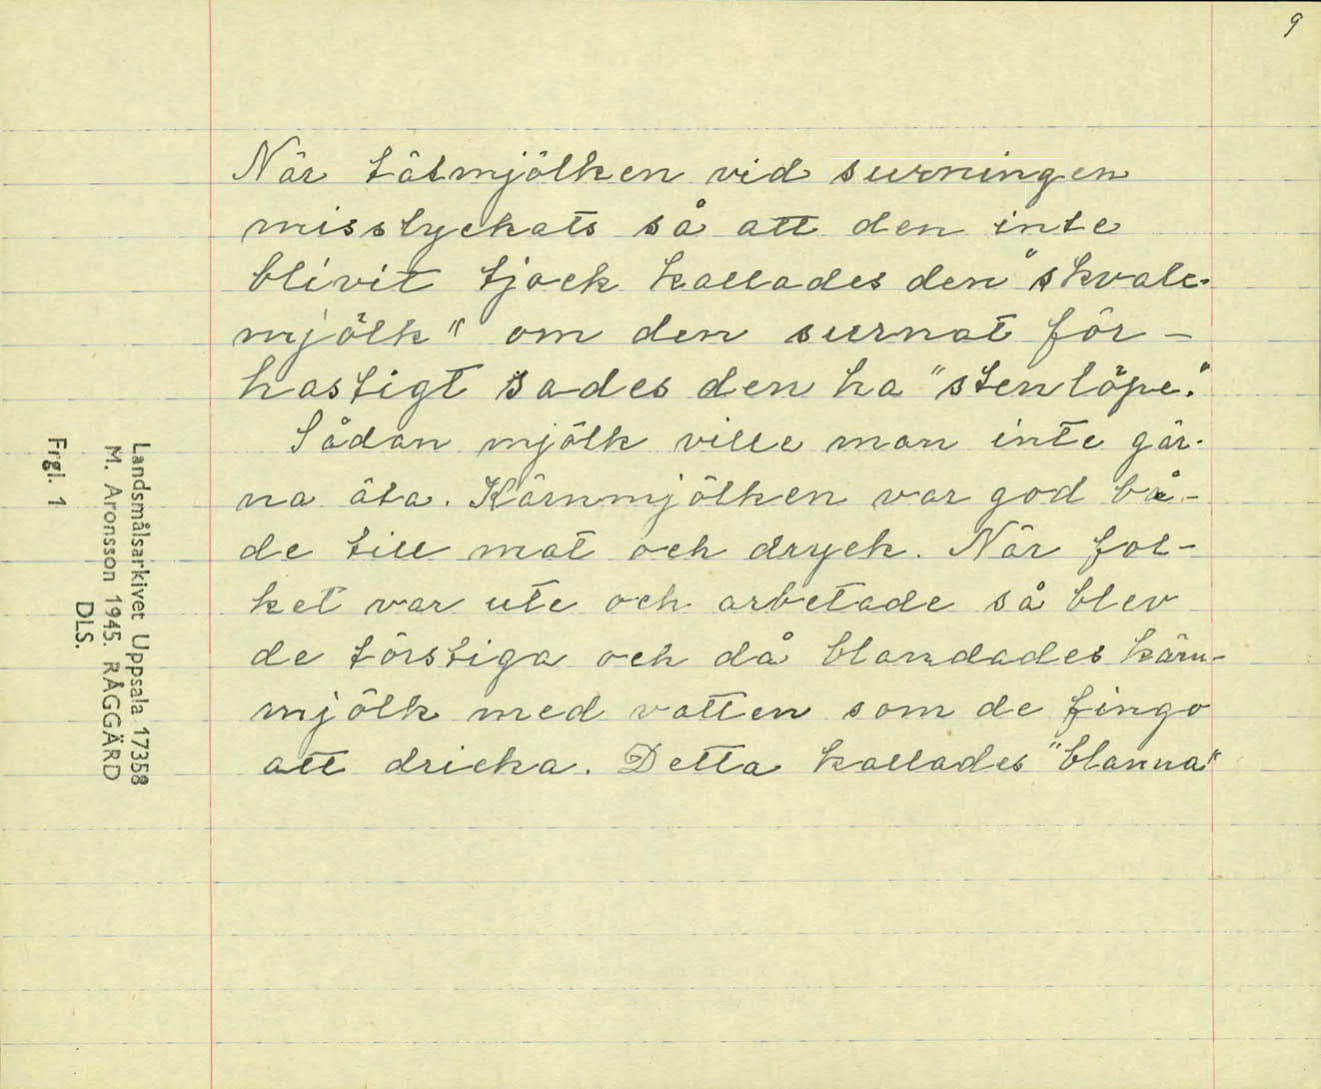 9
När tätmjölken vid surningen
misslyckats så att den inte
blivit tjock kallades den "skval-
mjölk" om den surnat för-
hastigt sades den ha "stenlöpe".
Sådan mjölk ville man inte gär-
na äta. Kärnmjölken var god bå-
de till mat och dryck. När fol-
ket var ute och arbetade så blev
de törstiga och då blandades kärn-
mjölk med vatten som de fingo
att dricka. Detta kallades "blanna"
Landsmålsarkivet Uppsala 17358
M. Aronsson 1945. RÅGGÄRD
DLS.
Frgl. 1